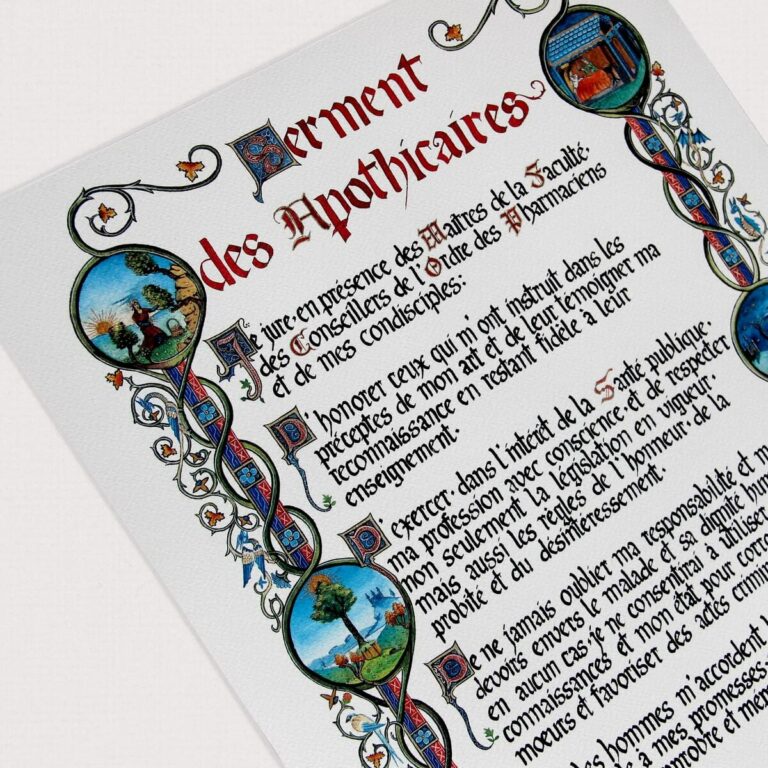 Serment
des Apothicaires
Je jure, en présence des Maîtres de la Faculté,
des Conseillers de l'Ordre des Pharmaciens
et de mes condisciples:
D'honorer ceux qui m'ont instruit dans les
préceptes de mon art et de leur témoigner ma
reconnaissance en restant fidèle à leur
enseignement.
D'exercer, dans l'intérêt de la Santé publique,
ma profession avec conscience et de respecter
non seulement la législation en vigueur,
mais aussi les règles de l'honneur, de la
probité et du désintéressement.
De ne jamais oublier ma responsabilité et m
devoirs envers le malade et sa dignité hum
en aucun cas je ne consentirai à utiliser
connaissances et mon état pour corro
moeurs et favoriser des actes crimin
es hommes m'accordent
le à mes promesses;